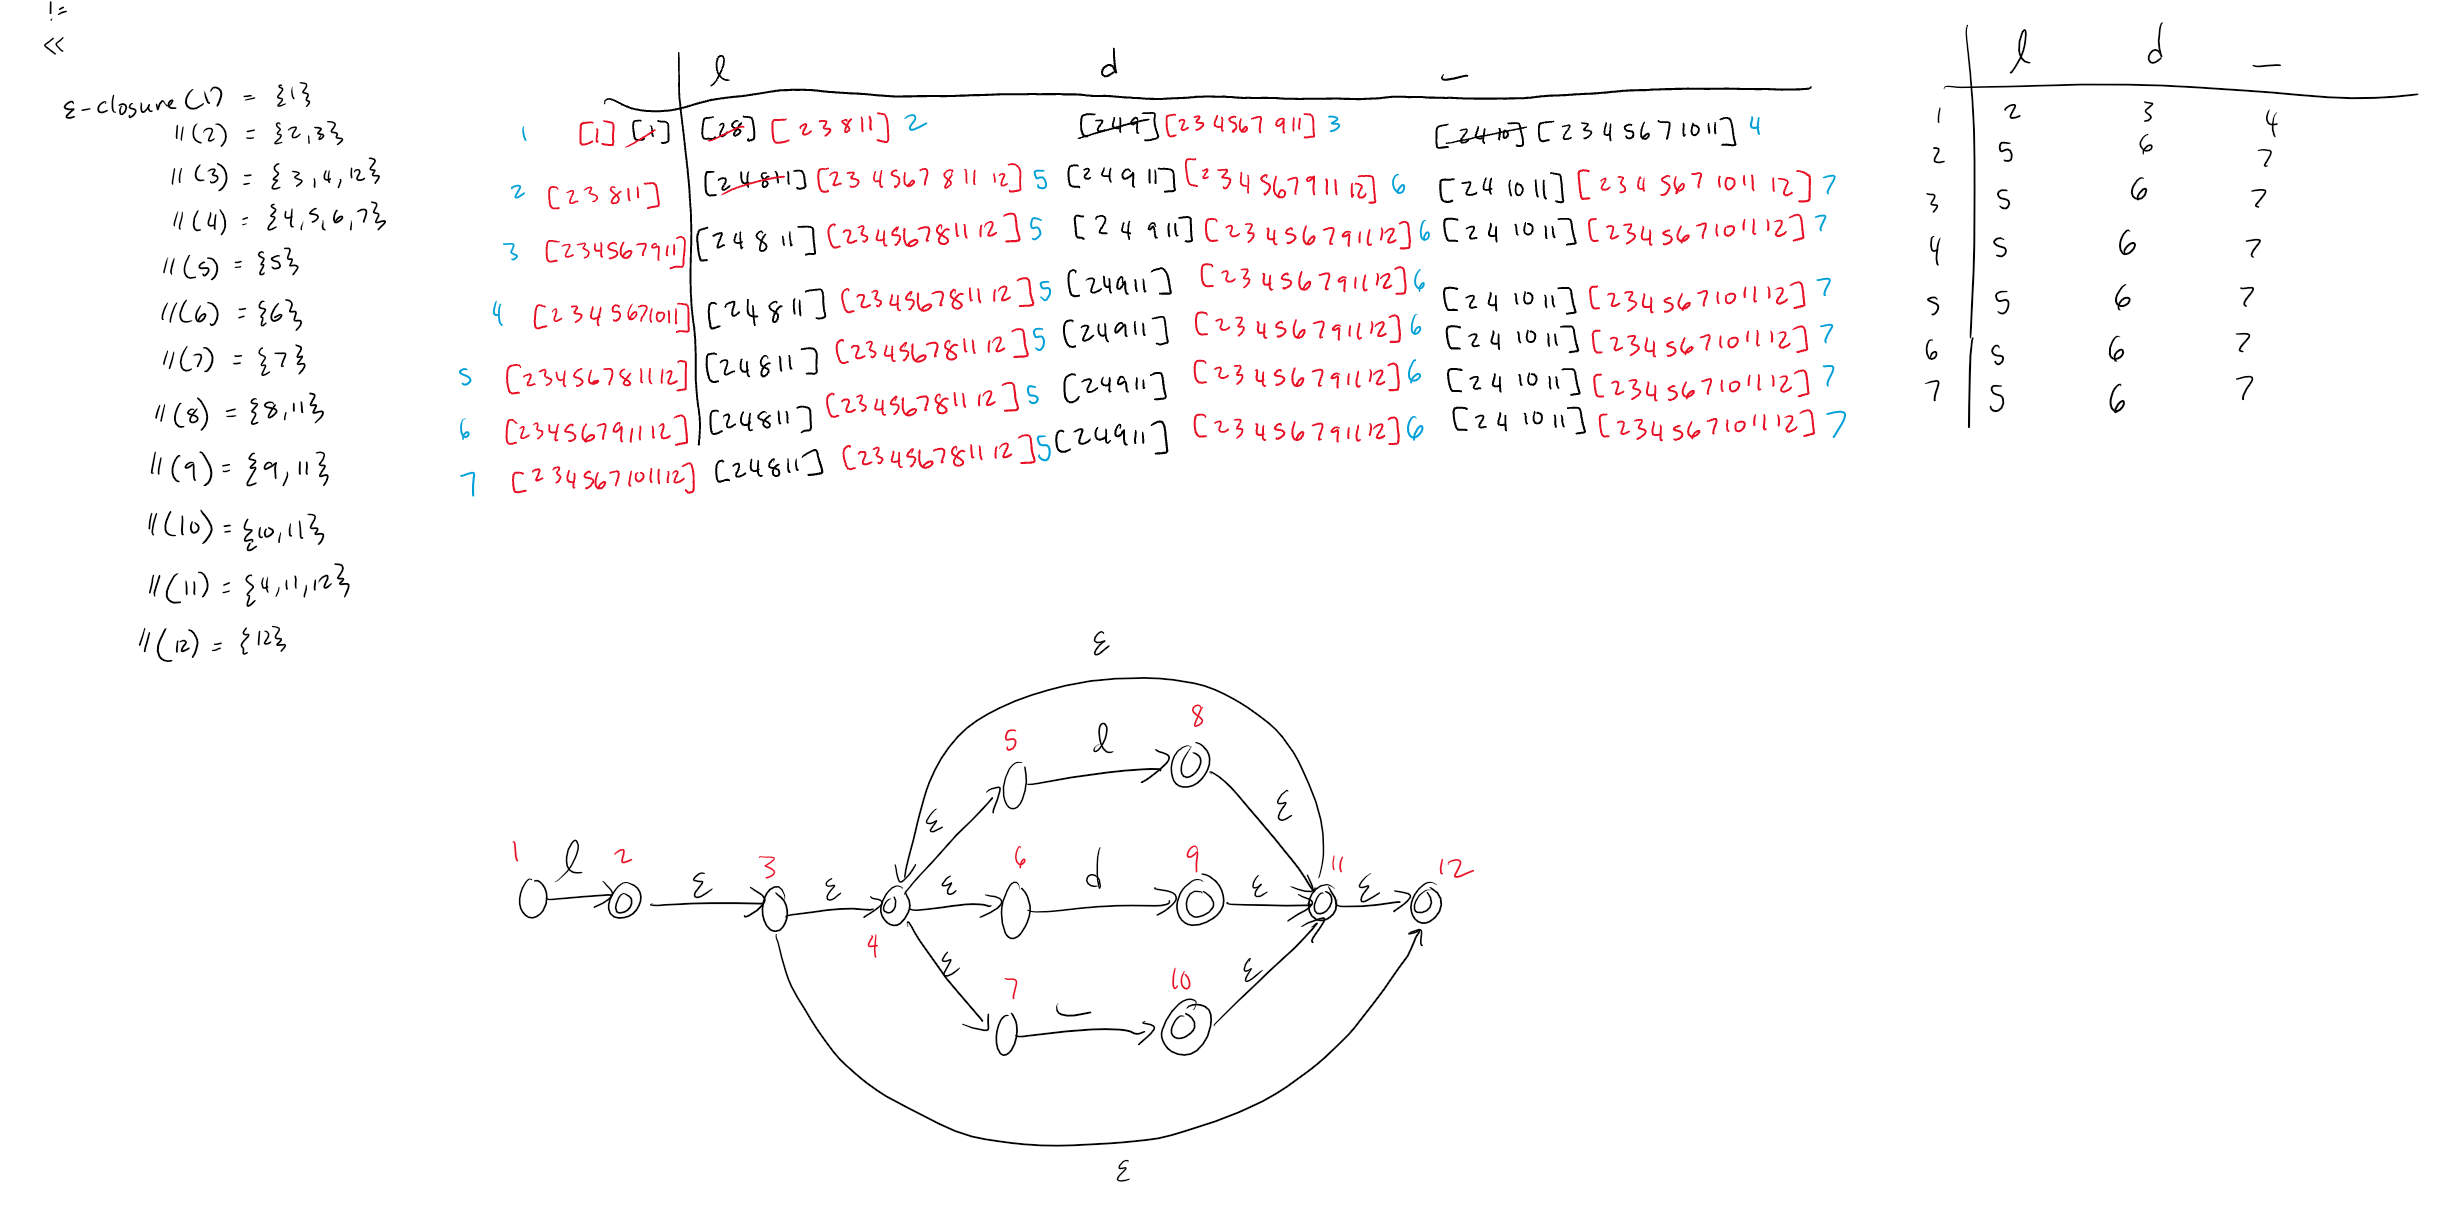 !=
<<
ε-closure(1) = {1}
"(2) = {2,3}
"(3) = {3,4,12}
"(4) = {4,5,6,7}
"(5) = {5}
"(6) = {6}
"(7) = {7}
"(8) = {8,11}
"(9) = {9,11}
"(10) = {10,11}
"(11) = {4,11,12}
"(12) = {12}
l d _
1 [1] [1] [28] [23811] 2 [249] [234567911] 3 [2410] [2345671011] 4
2 [23811] [24811] [23456781112] 5 [24911] [23456791112] 6 [241011] [234567101112] 7
3 [234567911] [24811] [23456781112] 5 [24911] [23456791112] 6 [241011] [234567101112] 7
4 [2345671011] [24811] [23456781112] 5 [24911] [23456791112] 6 [241011] [234567101112] 7
5 [23456781112] [24811] [23456781112] 5 [24911] [23456791112] 6 [241011] [234567101112] 7
6 [23456791112] [24811] [23456781112] 5 [24911] [23456791112] 6 [241011] [234567101112] 7
7 [234567101112] [24811] [23456781112] 5 [24911] [23456791112] 6 [241011] [234567101112] 7
l d _
1 2 3 4
2 5 6 7
3 5 6 7
4 5 6 7
5 5 6 7
6 5 6 7
7 5 6 7
ε
5 l 8
ε ε
1 l 2 ε 3 ε 4 ε 6 d 9 ε 11 ε 12
ε ε
7 _ 10
ε